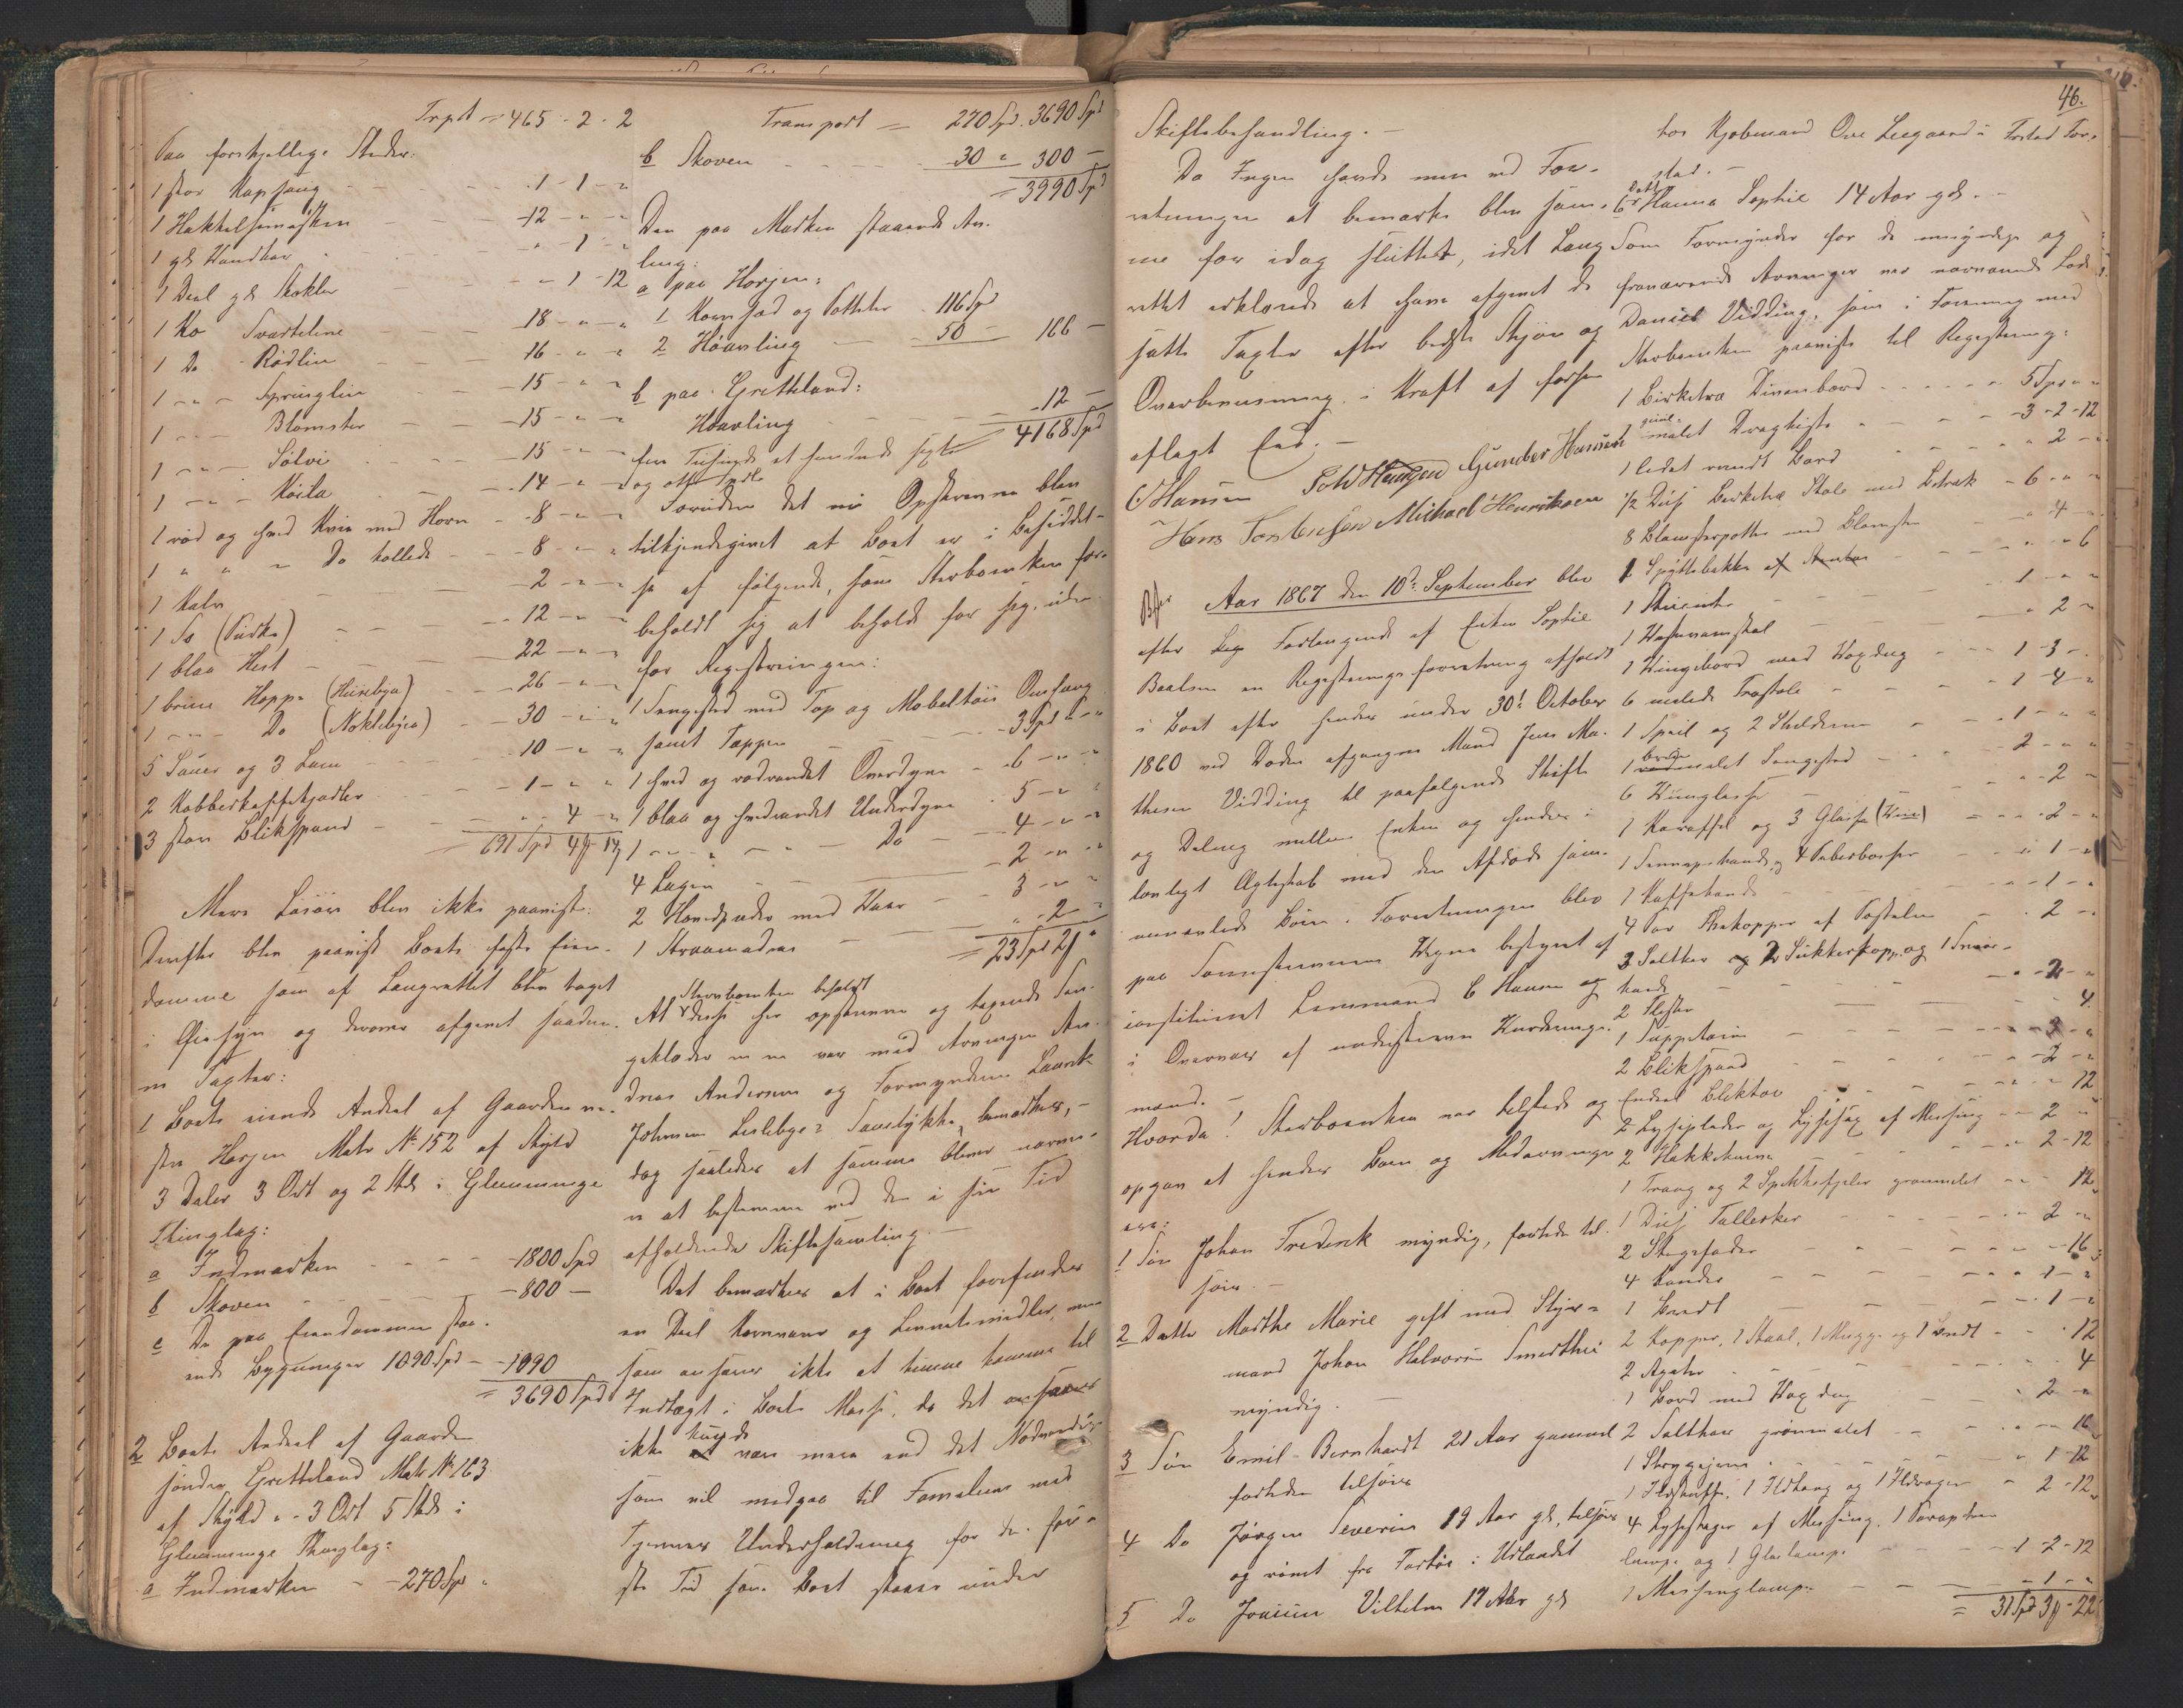 Trpt = 465 - 2 - 2
Paa forskjellige Steder:
1 stor Kapsaug - - 1 - 1 - "
1 Hakkelsemaskin - - 12 - " - "
1 gl Vandkar - - " - 1 - "
1 Deel gl Skokler - - " - 1 - 12
1 Ko Svarteline - - 18 - " - "
1 Do Rødlin - - 16 - " - "
1 - " - Springlin - - 15 - " - "
1 - " - Blomster - - 15 - " - "
1 - " - Sølvi - - 15 - " - "
1 - " - Koila - - 14 - " - "
1 rød og hvid Kvie med Horn - 8 - " - "
1 " " " Do kollede - 8 - " - "
1 Kalv - - 2 - " - "
1 So - - 12 - " - "
1 blaa Hest - - 22 - " - "
1 brun Hoppe (Husebya) - 26 - " - "
1 - " - Do (Noklebya) - 30 - " - "
5 Sauer og 3 Lam - - 10 - " - "
2 Kobberkaffekjedler - 1 - " - "
3 store Blikspand - - " - 4 - "
= 691 Spd 4 - 14
Mere Løsøre blev ikke paaviist.
Derefter blev paaviist Boets faste Eien-
domme som af Laugrettet blev taget
i Øiesyn og derover afgivet saadan-
ne Taxter:
1 Boets eiende Andeel af Gaarden ve-
stre Horjen Matr No 152 af Skyld
3 Daler 3 Ort og 2 Sk i Glemminge
Thinglag:
a Indmarken - - 1800 Spd
b Skoven - - 800 -
c De paa Eiendommen staa-
ende Bygninger 1090 Spd - 1090
= 3690 Spd
2 Boets Andeel af Gaarden
søndre Gretteland Matr No 163
af Skyld " - 3 Ort 5 Sk i
Glemminge Thinglag:
a Indmarken - - 270 Spd "
Transport = 270 Spd. 3690 Spd
b Skoven - - 30 " 300 -
= 3990 Spd
Den paa Marken staaende Av-
ling:
a paa Horjen:
1 Kornsæd og Potteter 116 Spd
2 Høavling - 50 - 166 -
b paa Gretteland:
Høavling - - 12 -
4168 Spd
fire Tusinde et hundrede sexti
og otte Spdlr
Foruden det nu Opskrevne blev
tilkjendegivet at Boet er i Besiddel-
se af følgende, som Sterboenken for-
beholdt sig at beholde for sig, uden-
for Registreringen:
1 Sengested med Top og Møbeltøis Omhæng
samt Tæppe - - 3 Spd " - "
1 hvid og rødrandet Overdyne - 6 - " - "
1 blaa og hvidrandet Underdyne - 5 - " - "
1 - " - " - Do - 4 - " - "
4 Lagen - - 2 - " - "
2 Hovedpuder med Vaar - 3 - " - "
1 Straamadras - - " - 2 - "
= 23 Spd 2 "
Sterboenken beholdt
At disse her opskrevne og tagende Sen-
geklæder m m var med Arvingen An-
dreas Andersen og Formynderen Laurits
Johnsen Lislebye Samtykke, bemærkes, -
dog saaledes at samme bliver nærme-
re at bestemme ved den i sin Tid
afholdende Skiftesamling. -
Det bemærkes at i Boet forefindes
en Deel Kornvarer og Levnetsmidler, men
som ansaaes ikke at kunne komme til
Indtægt i Boets Masse, da det ansaaes
ikke kunde være mere end det Nødvendige
som vil medgaa til Familiens med
Tjeneres Underholdning for den før-
ste Tid som Boet staaer under
46.
Skiftebehandling. -
Da Ingen havde mere ved For-
retningen at bemærke blev sam-
me for idag sluttet, idet Laug-
rettet erklærede at have afgivet de
satte Taxter efter bedste Skjøn og
Overbeviisning i Kraft af forhen
aflagt Eed. -
C Hansen Gunder Hansen
Hans Torstensen Michael Henriksen
Aar 1867 den 10d September blev
efter Forlangende af Enken Sophie
Boelsen en Registreringsforretning afholdt
i Boet efter hendes under 30t October
1860 ved Døden afgangne Mand Jens Ma-
thesen Vidding til paafølgende Skifte
og Deling mellem Enken og hendes i
lovligt Ægteskab med den Afdøde sam-
menavlede Børn. Forretningen blev
paa Sorenskriverens Vegne bestyret af
constitueret Lensmand C Hansen og
i Overvær af underskrevne Vurderings-
mænd. -
Hvorda! Sterboenken var tilstede og
opgav at hendes Børn og Medarvinge
ere:
1 Søn Johan Frederik myndig, farende til
søes. -
2 Datter Marthe Marie gift med Skips-
mand Johan Halvorsen Smerthu
myndig. -
3 Søn Emil Bernhardt 21 Aar gammel
farende tilsøes
4 Do Jørgen Severin 19 Aar gl, tilsøes
og rømt fra Fartøi i Udlandet
5 Do Jensine Vilhelm 17 Aar gl
hos Kjøbmand Ove Leegaard i Fr.stad For-
stad. -
6 Datt Hanna Sophie 14 Aar gl. -
Som Formynder for de umyndige og
fraværende Arvinger var nærværende Lods
Daniel Vidding, som i Forening med
Sterboenken paaviiste til Registrering:
1 Birketræ Divanbord - - 5 Spd " - "
1 guul- malet Dragkiste - - 3 - 2 - 12
1 ledet rundt Bord - - " 2 - "
1/2 Dus Birketræ Stole med Betræk - 6 - " - "
8 Blomsterpotter med Blomster - - " 4 - "
1 Spyttebakke - - " - " - 6
1 Stueuhr - - 1 - " - "
1 - - " 2 - "
1 Vingebord med Voxdug - - 1 - 3 - "
6 malede Træstole - - 1 - 4 - "
1 Speil og 2 Skilderier - - 1 - " - "
1 malet Sengested - - 2 - " - "
6 Viinglasse - - " - 2 - "
1 Karaffel og 3 Glasse (Viin) - " - 2 - "
1 Sennepskande, 4 Peberbøsser - " 1 - "
1 Kaffekande - - " - 1 - "
4 Par Thekopper af Postelin - " 2 - "
3 Saltkar 2 Sukkerkopp. og 1 Smør-
kande - - " - 2 - "
2 Flasker - - " - " - 4
1 Suppeterin - - " - 3 - "
2 Blikspand - - " - 2 - "
Endeel Bliktøi - - " - " - 12
2 Lysplader og Lysesax af Messing - " 2 - "
2 Hakkeknive - - " 2 - 12
1 Traug og 2 Spikkefjeler grønmalet - " - " 12
1 Dus Tallerker - - " 2 - "
2 Stegefade - - " - " - 16
4 Kander - - " - 1 - "
1 Bredt - - " - 1 - "
2 Kopper, 1 Skaal, 1 Mugge og 1 Bredt - " " 12
2 - - 4
1 Bord med Voxdug - - " 2 - "
2 Saltkar grønmalet - - " - " - 16
1 Strygejern - - " 1 - 12
1 Ildskuffe, 1 Ildtang og 1 Ildrager - " 2 - 12
4 Lysestager af Messing, 1 Parafin
lampe og 1 Glaslampe - - 1 - 2 - 12
1 Messinglampe - - " 1 - "
= 31 Spd 3 - 22